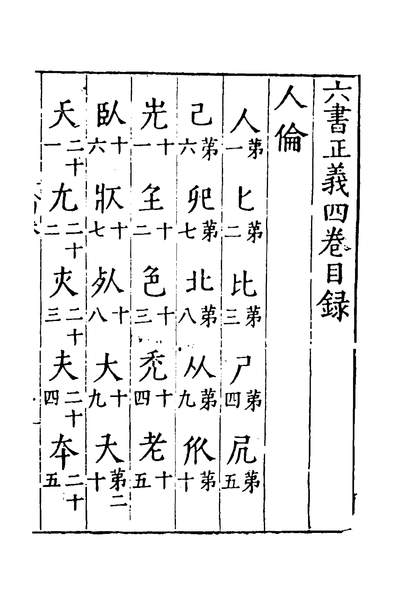 六書正義四卷目録
人倫
人第一 匕第二 比第三 尸第四 第五
己第六 第七 北第八 从第九 㐺第十
十一 十二 色十三 禿十四 老十五
臥十六 十七 十八 大十九 第二十
夭二十一 尢二十二 夾二十三 夫二十四 夲二十五